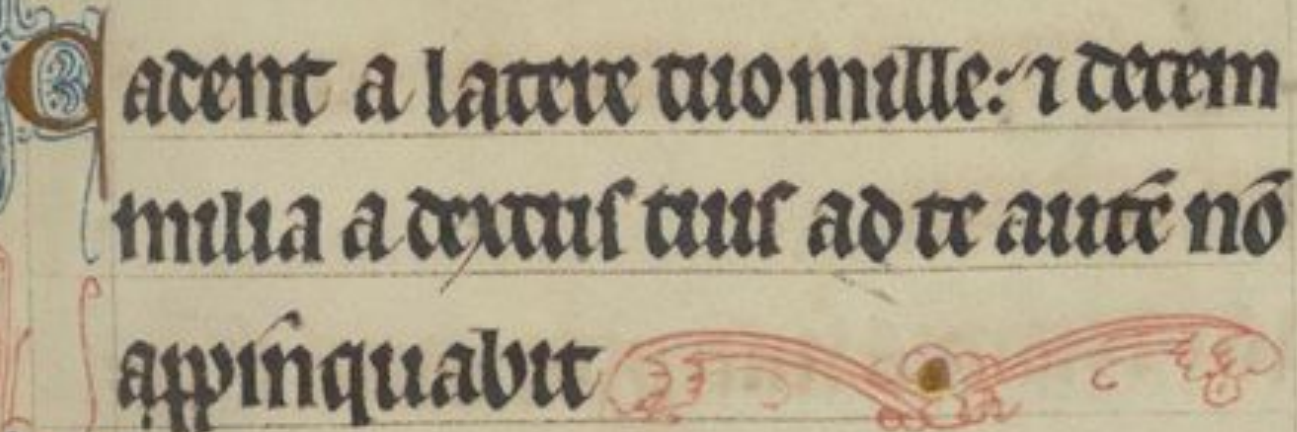 Cadent a latere tuo mille: ⁊ decem
milia a dextris tuis ad te autē nō
appīnquabit